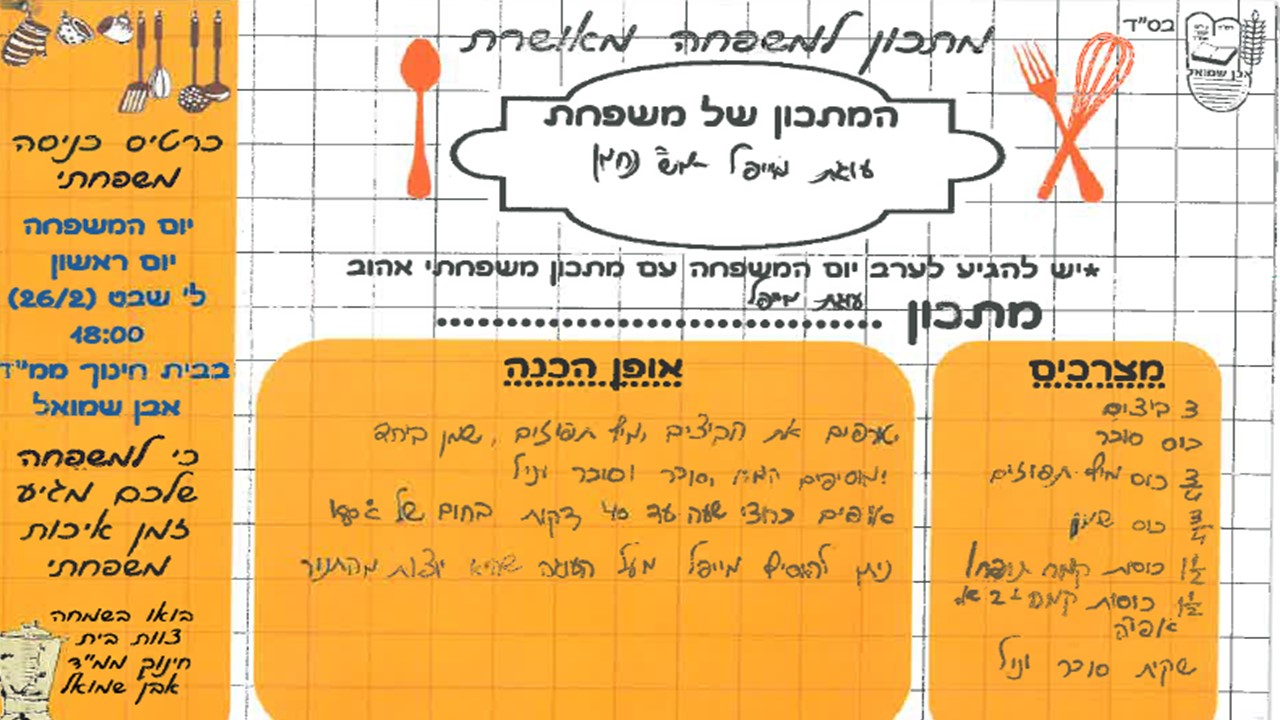 בס"ד
אבן שמואל
מתכון למשפחה מאושרת
המתכון של משפחת
עוגת מייפל
*יש להגיע לערב יום המשפחה עם מתכון משפחתי אהוב
מתכון עוגת מייפל
מצרכים
3 ביצים
כוס סוכר
3/4 כוס מיץ תפוזים
3/4 כוס שמן
1 1/2 כוסות קמח תופח /
1 1/2 כוסות קמח + 2
אפיה
שקית סוכר וניל
אופן הכנה
טורפים את הביצים, מיץ תפוזים, שמן ביחד
מוסיפים קמח, סוכר וסוכר וניל
אופים כחצי שעה עד 40 דקות בחום של
ניתן להוסיף מייפל מעל העוגה שהיא יוצאת מהתנור
כרטיס כניסה
משפחתי
יום המשפחה
יום ראשון
ל' שבט (26/2)
18:00
בבית חינוך ממ"ד
אבן שמואל
כי למשפחה
שלכם מגיע
זמן איכות
משפחתי
בואו בשמחה
צוות בית
חינוך ממ"ד
אבן שמואל